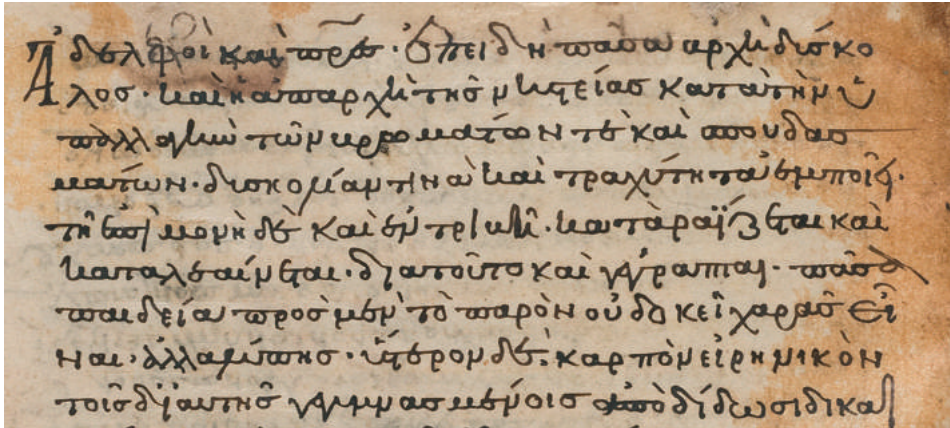 Ἀδελφοὶ καὶ πρς · Ἐπειδὴ πᾶσα ἀρχὴ δίσκο
λος · καὶ ἡ ἀπαρχὴ τῆς νηστείας κατὰ τὴν ὑ
πόλληψιν τῶν βρομάτων τὲ καὶ σπουδασ
μάτων · δισκολίαν τινὰ καὶ τραχύτητα ἐμποιεῖ ·
τῇ ἐπιμονῇ δὲ καὶ ἐντριβῇ · καταραΐζεται καὶ
καταλεαίνεται · διατοῦτο καὶ γέγραπται · πᾶσα
παιδεία πρὸς μὲν τὸ παρὸν οὐ δοκεῖ χαρᾶς εἶ
ναι · ἀλλὰ λύπης · ὕστερον δὲ · καρπὸν εἰρηνικὸν
τοῖς δι' αὐτῆς γεγυμνασμένοις ἀποδίδωσι δικαι